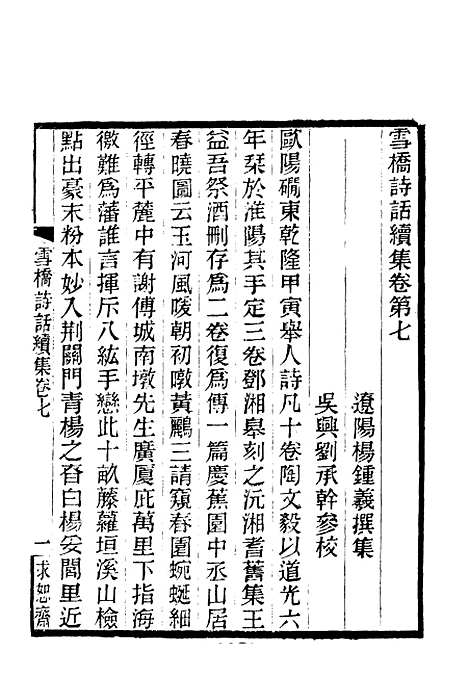 雪橋詩話續集卷第七
遼陽楊鍾羲撰集
吳興劉承幹參校
歐陽磵東乾隆甲寅舉人詩凡十卷陶文毅以道光六
年栞於淮陽其手定三卷鄧湘皋刻之沅湘耆舊集王
益吾祭酒刪存爲二卷復爲傳一篇慶蕉園中丞山居
春曉圖云玉河風暖朝初暾黃鸝三請窺春園蜿蜒細
徑轉平麓中有謝傅城南墩先生廣厦庇萬里下指海
徼難爲藩誰言揮斥八紘手戀此十畝藤蘿垣溪山檢
點出豪末粉本妙入荆關門青楊之巷白楊妥閭里近
雪橋詩話續集卷七
一
求恕齋